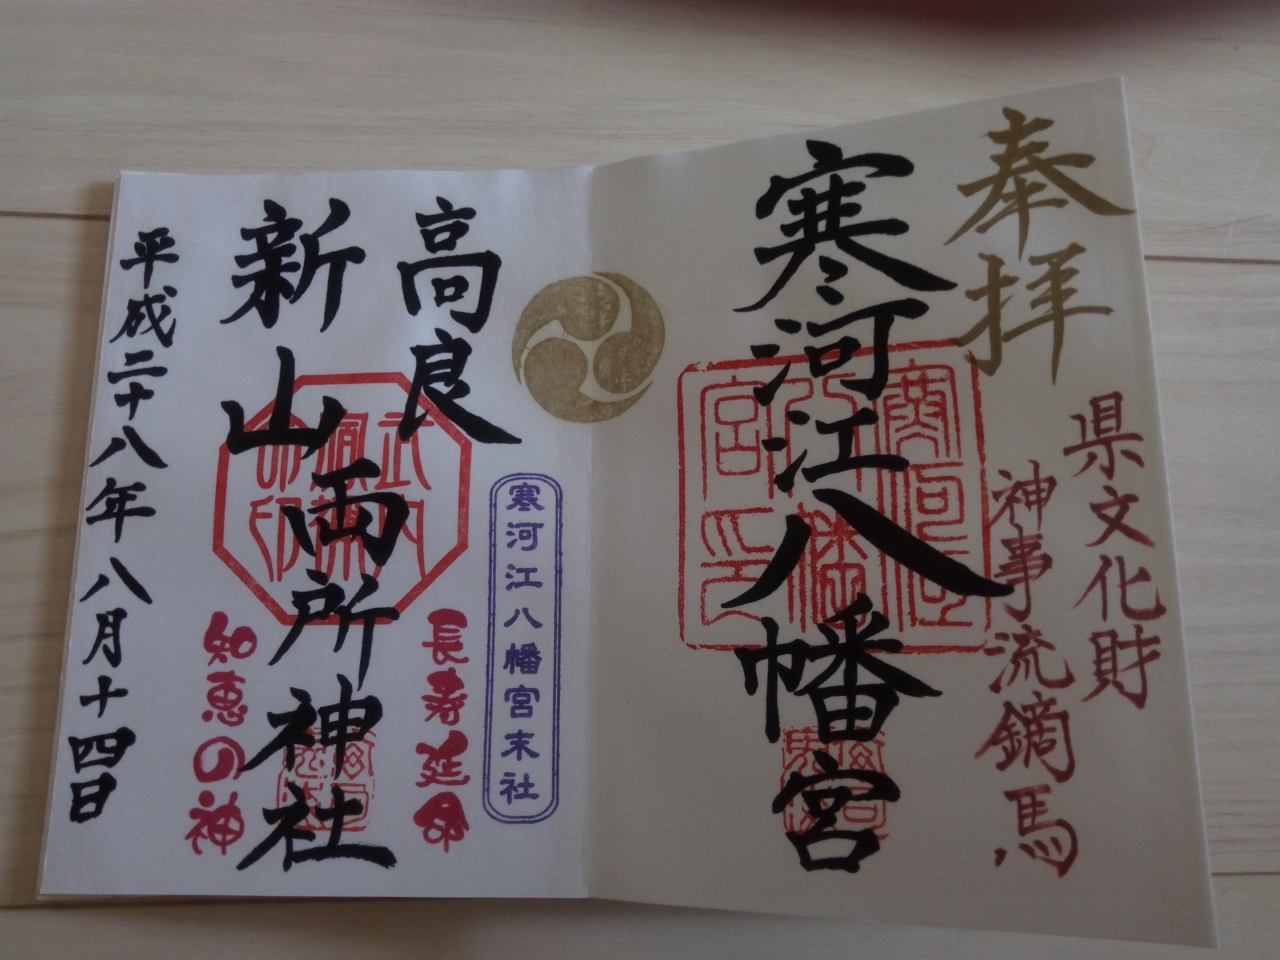 奉拝
県文化財
神事流鏑馬
寒河江八幡宮
寒河江八幡宮末社
高良
新山両所神社
長寿延命
知恵の神
平成二十八年八月十四日